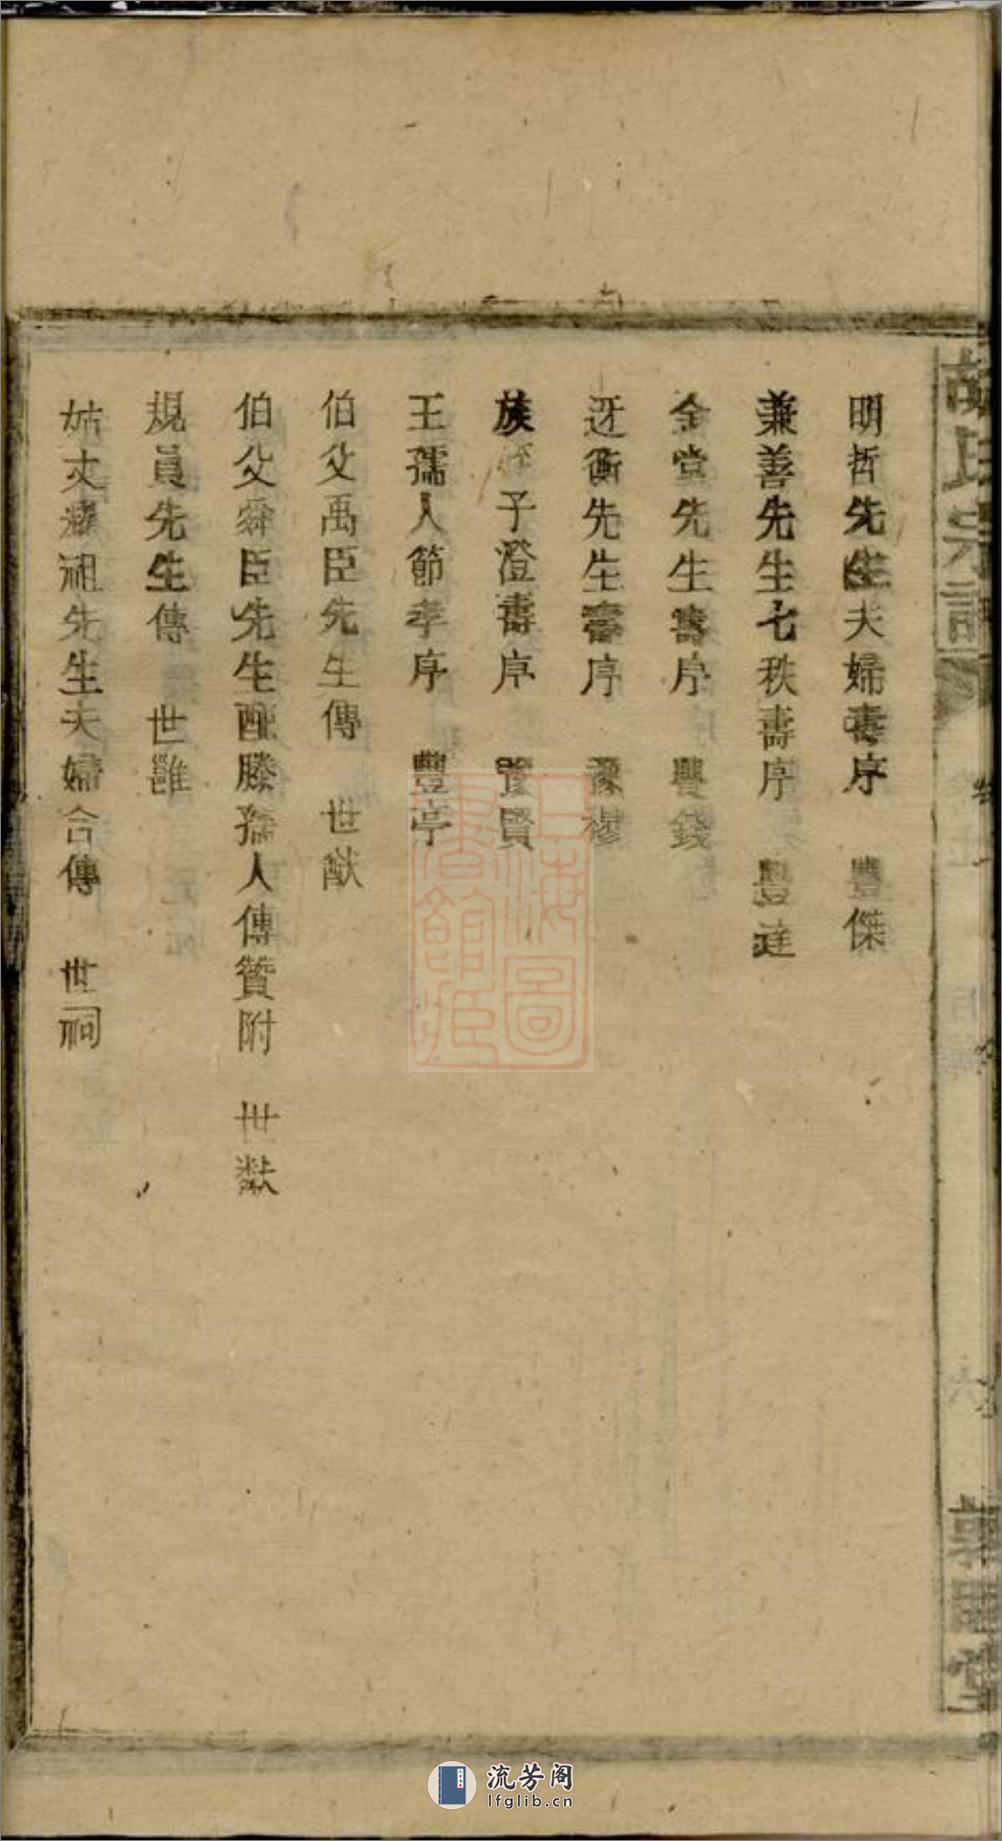 明哲先生夫婦壽序 豐傑
兼善先生七秩壽序 豐達
金堂先生壽序 興錢
迓衡先生壽序 豫樛
族侄子澄壽序 豫賢
王孺人節孝序 豐亭
伯父禹臣先生傳 世猷
伯父舜臣先生配滕孺人傳贊附 世
規員先生傳 世
姑丈繩祖先生夫婦合傳 世祠
氏宗譜
六
堂
上海圖書館藏
流芳阁
lfglib.cn